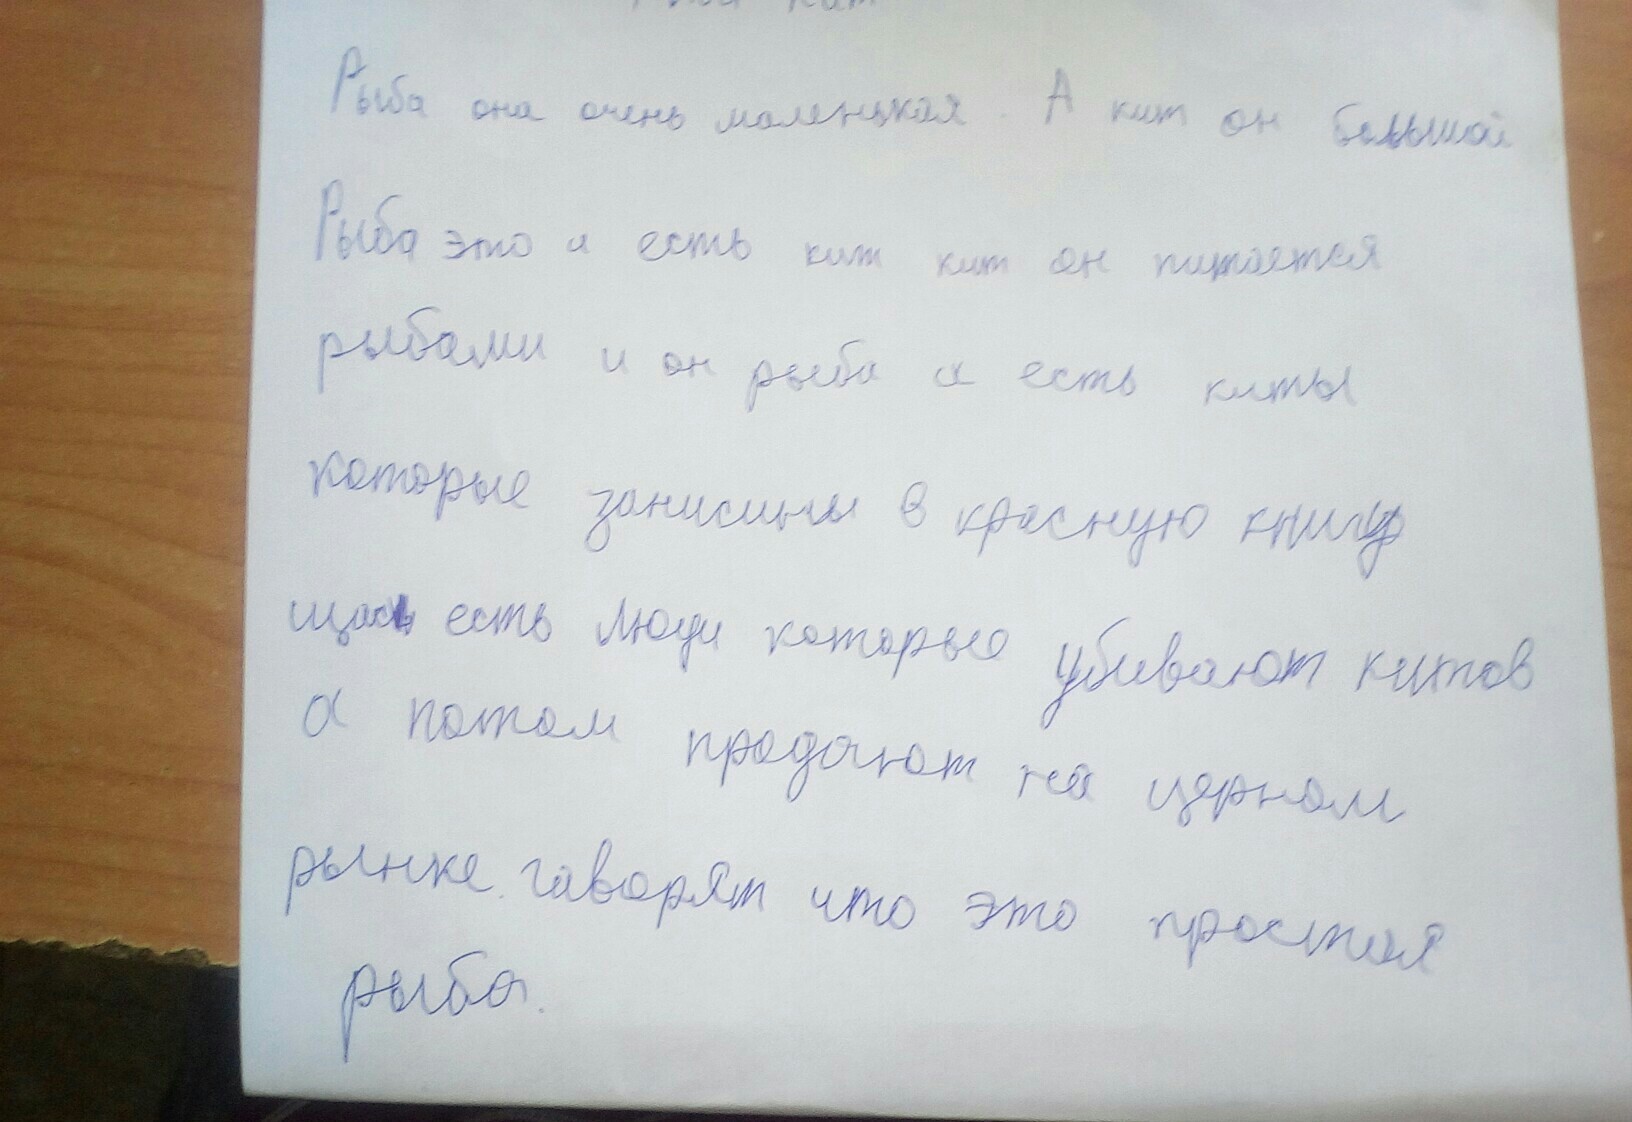 кит
Рыба она очень маленькая. А кит он большой
Рыба это и есть кит кит он питается
рыбами и он рыба и есть киты
которые занисины в красную книгу
щась есть люди которые убивают китов
а потом продают на церном
рынке. гаворят что это простая
рыба.